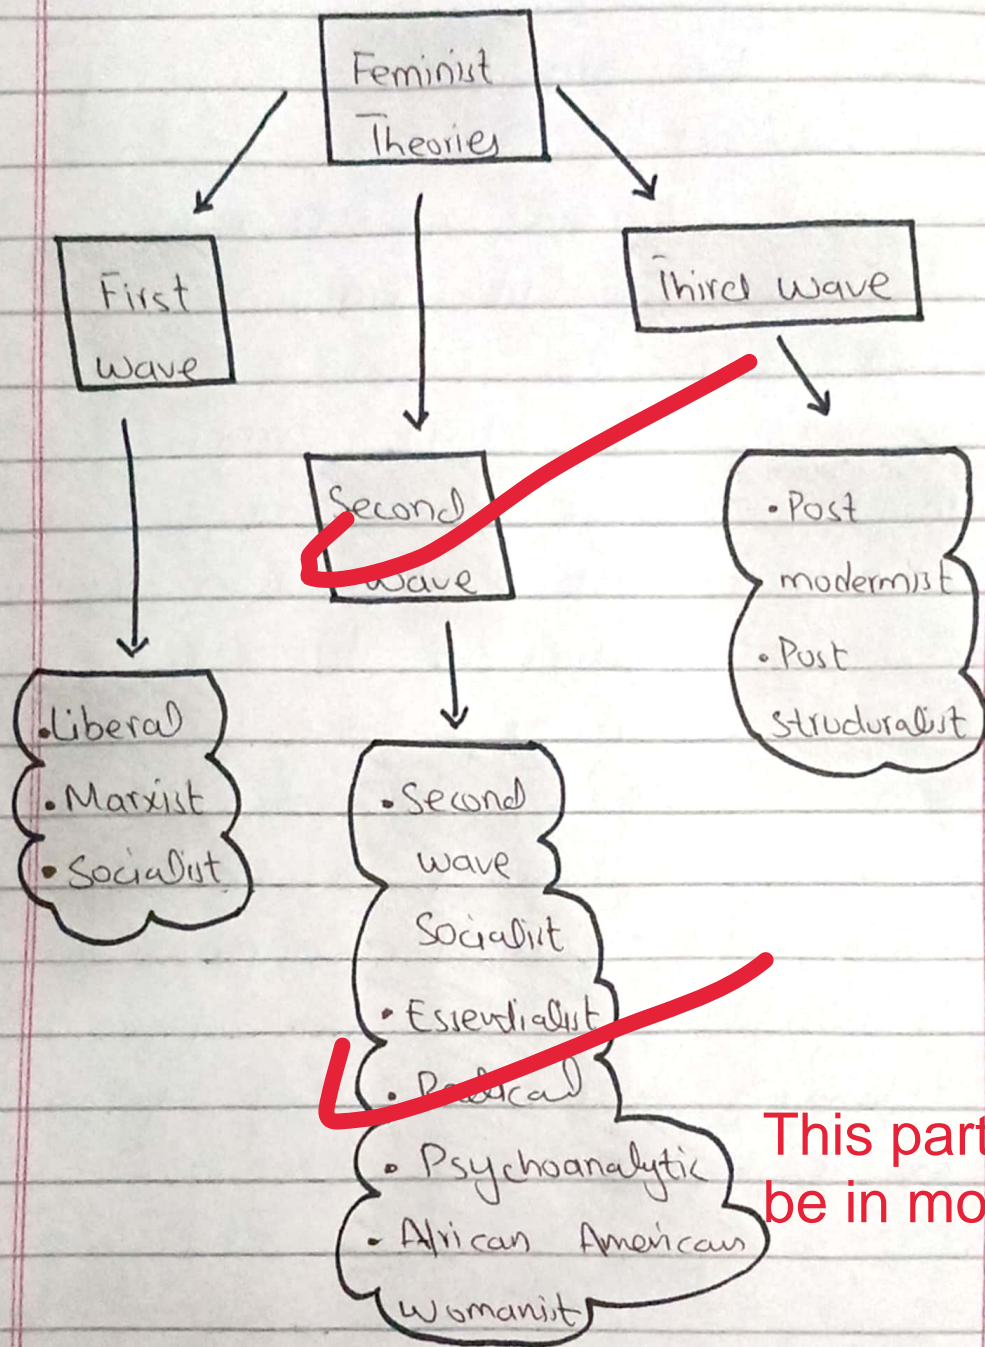 Feminist
Theories
First
Wave
Third Wave
Second
Wave
• Post
modernist
• Post
structuralist
• Liberal
• Marxist
• Socialist
• Second
wave
Socialist
• Essentialist
• Radical
• Psychoanalytic
• African American
Womanist
This part
be in mo